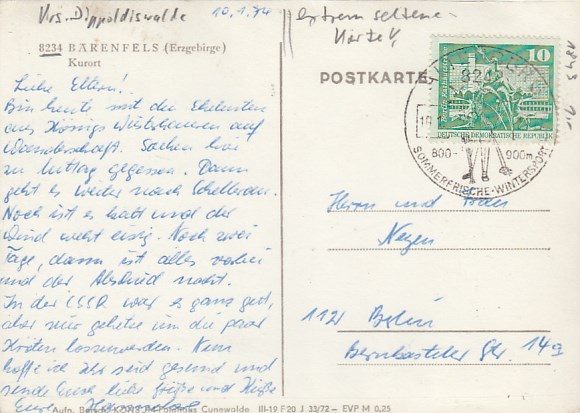 Krs. Dippoldiswalde
10.1.74
extrem seltene
Karte!!
8234 BÄRENFELS (Erzgebirge)
Kurort
POSTKARTE
10
DEUTSCHE DEMOKRATISCHE REPUBLIK
8242
800-
900m
SOMMERFRISCHE-WINTERSPORT
Liebe Eltern!
Bin heute mit den Eheleuten
aus Königs Wusterhausen auf
Wanderschaft. Haben hier
zu Mittag gegessen. Dann
geht es weiter nach
Noch ist es kalt und der
Wind weht eisig. Noch zwei
Tage, dann ist alles vorbei
und der Abschied naht.
In der CSSR war es ganz gut,
aber nur Gehetze um die paar
Kronen loszuwerden. Nun
hoffe ich Ihr seid gesund und
sende Euch liebe Grüße und Küße
Eure
Herrn und Frau
1121 Berlin
Bernkasteler Str. 149
Aufn. Cunewalde III-19 F 20 J 33/72 - EVP M 0,25